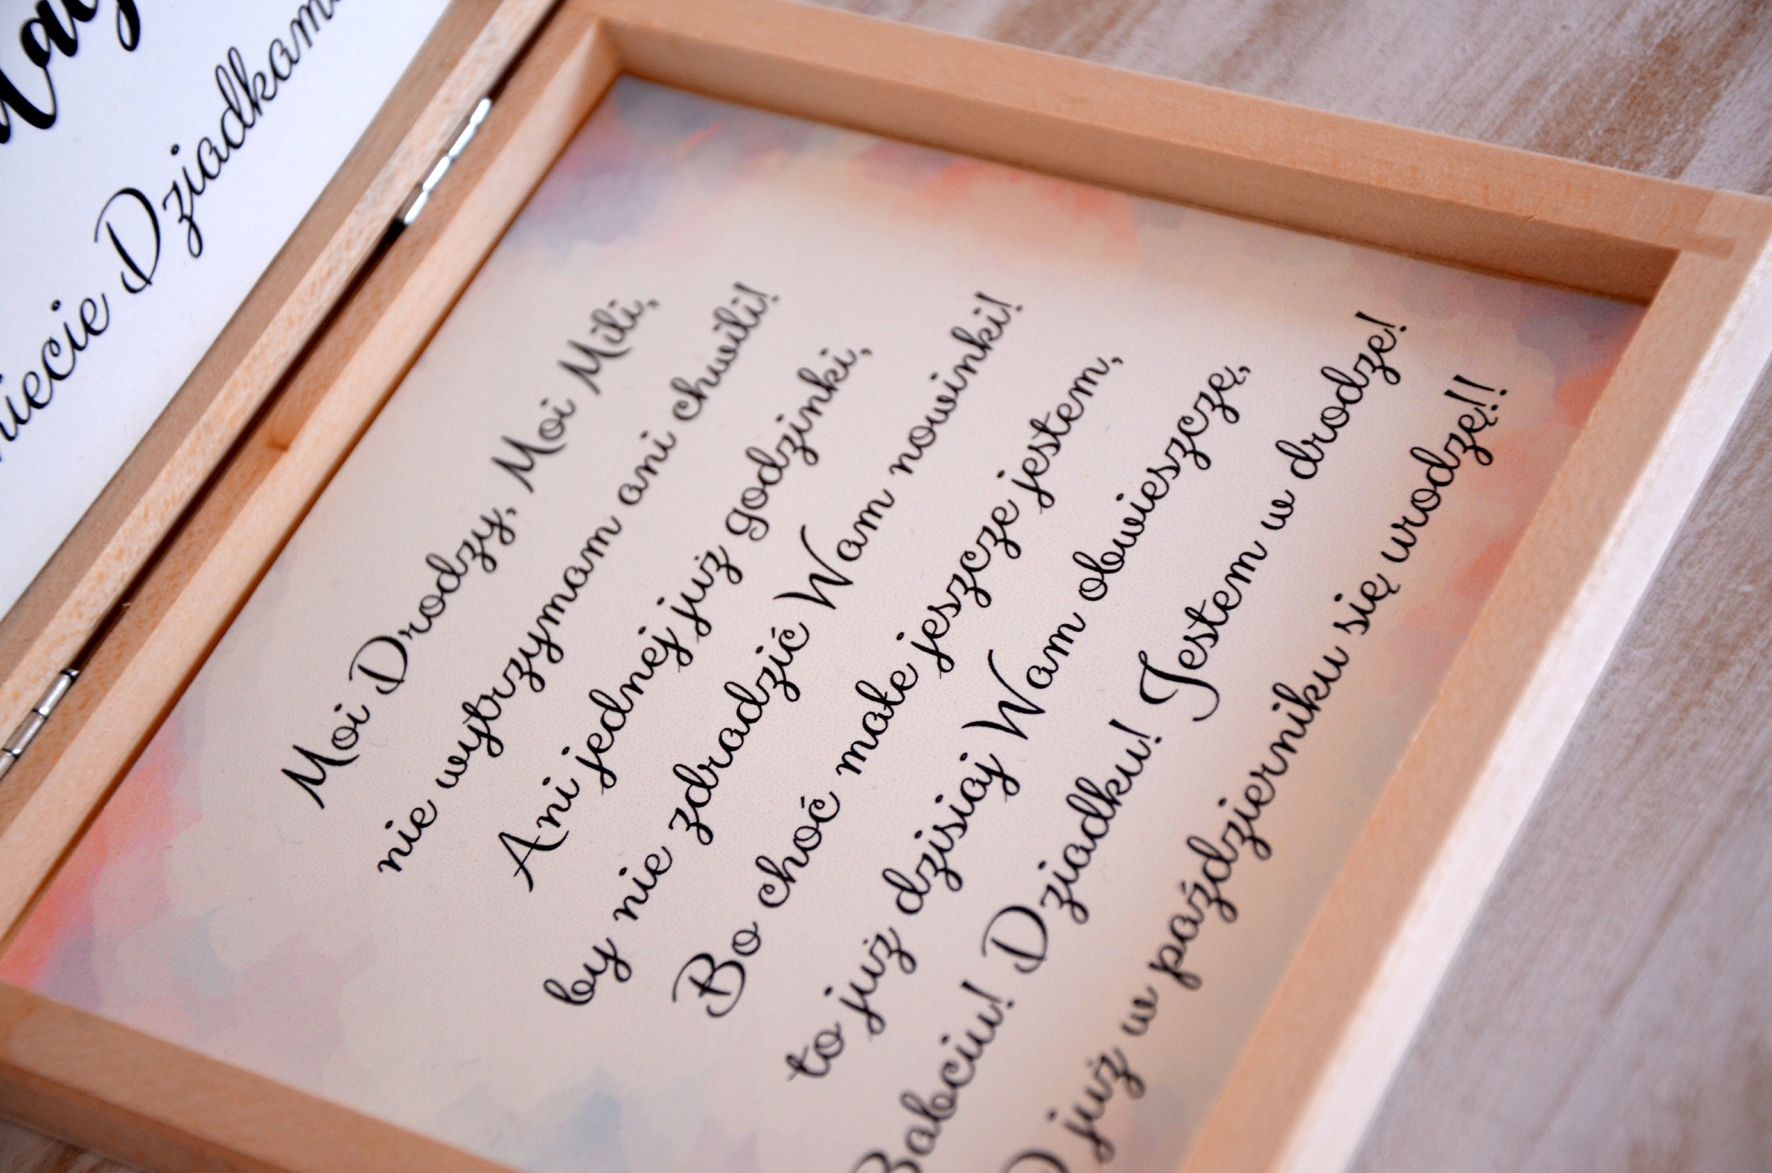 Dziadkami
Moi Drodzy, Moi Mili,
nie wytrzymam ani chwili!
Ani jednej już godzinki,
by nie zdradzić Wam nowinki!
Bo choć małe jeszcze jestem,
to już dzisiaj Wam obwieszczę,
Babciu! Dziadku! Jestem w drodze!
już w październiku się urodzę!!